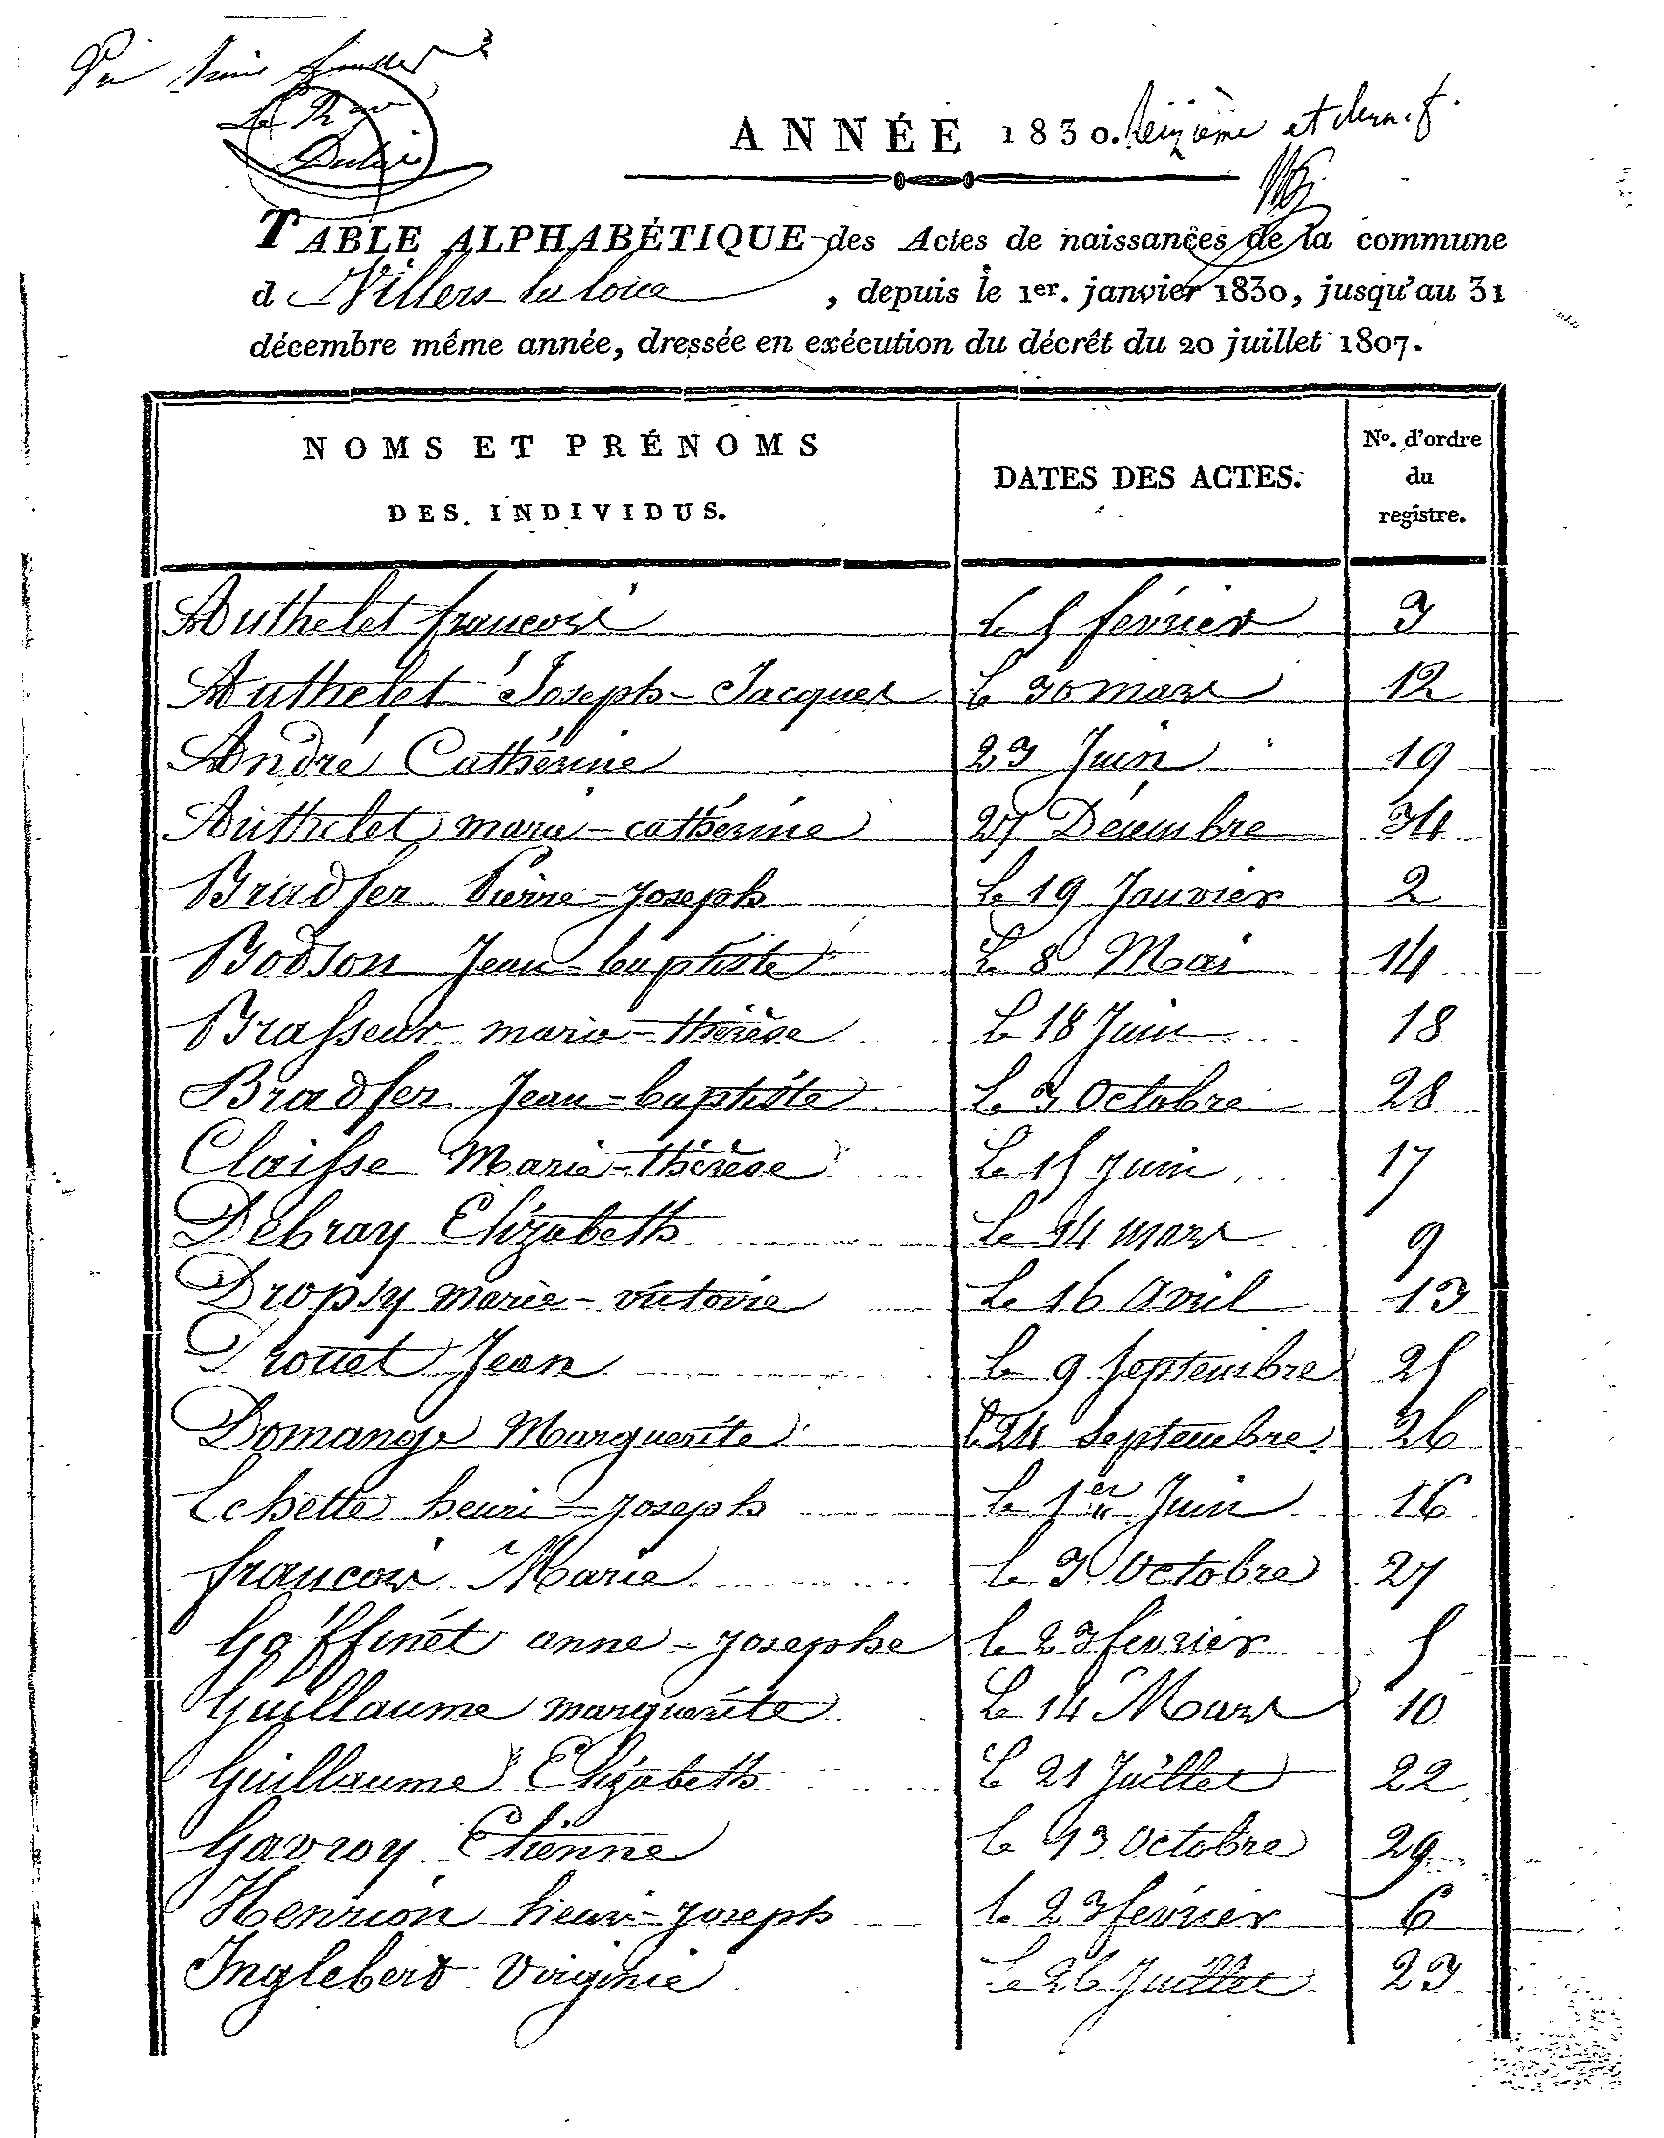 ANNÉE 1830. seizième et dern. f.
TABLE ALPHABÉTIQUE des Actes de naissances de la commune
d Villers la loue, depuis le 1er. janvier 1830, jusqu'au 31
décembre même année, dressée en exécution du décrêt du 20 juillet 1807.
NOMS ET PRÉNOMS
DES INDIVIDUS.
DATES DES ACTES.
No. d'ordre
du
registre.
Authelet françois le 5 février 3
Authelet Joseph-Jacques le 30 mars 12
André Cathérine 23 Juin 19
Authelet marie-cathérine 27 Décembre 34
Bradfer Pierre-Joseph le 19 Janvier 2
Bodson Jean-baptiste le 8 Mai 14
Brasseur marie-thérèse le 18 Juin 18
Bradfer Jean-baptiste le 3 Octobre 28
Claisse Marie-thérèse le 15 Juin 17
Debray Elizabeth le 14 mars 9
Dropsy marie-victoire le 16 avril 13
Drouet Jean le 9 septembre 25
Domange Marguerite le 24 septembre 26
Echette henri-Joseph le 1er Juin 16
françois Marie le 3 Octobre 27
Goffinet anne-Josephe le 23 février 5
Guillaume marguerite le 14 Mars 10
Guillaume Elizabeth le 21 Juillet 22
Gavroy Etienne le 13 Octobre 29
Henrion henri-Joseph le 23 février 6
Inglebert Virginie le 26 Juillet 23